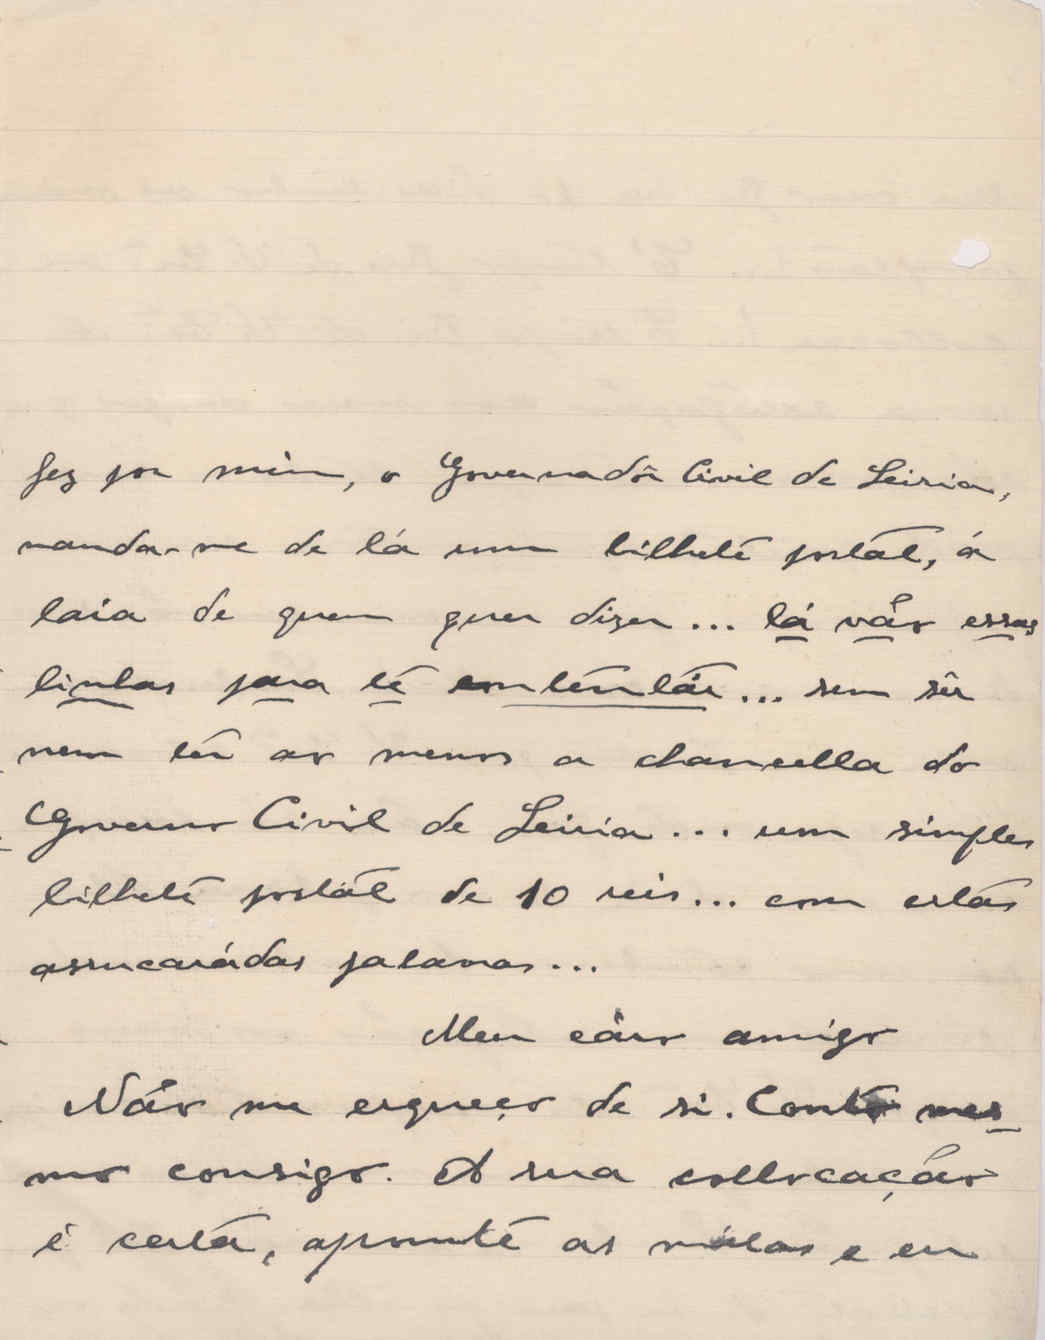 fez por mim, o Governadôr Civil de Leiria,
manda-me de lá um bilhete postal, á
laia de quem quer dizer... lá vão essas
linhas para te contentár... sem sêr
nem têr ao menos a chancella do
Governo Civil de Leiria... um simples
bilhete postal de 10 reis... com estas
assucarádas palavras...
Meu cáro amigo
Não me esqueço de si. Conto mes-
mo consigo. A sua collocação
é certa, apronte as malas e eu